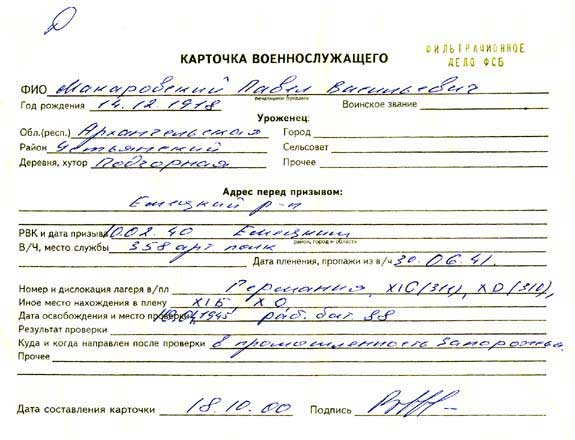 КАРТОЧКА ВОЕННОСЛУЖАЩЕГО
ФИЛЬТРАЦИОННОЕ
ДЕЛО ФСБ
ФИО Макаровский Павел Васильевич
печатными буквами
Год рождения 14.12.1918 Воинское звание
Уроженец:
Обл.(респ.) Архангельская Город
Район Устьянский Сельсовет
Деревня, хутор Подгорная Прочее
Адрес перед призывом:
Емецкий р-н
РВК и дата призыва 10.02.40 Емецким
район, город и область
В/Ч, место службы 358 арт полк
Дата пленения, пропажи из в/ч 30.06.41.
Номер и дислокация лагеря в/пл Германия, XIC (311), XD (310),
Иное место нахождения в плену XIБ XO
Дата освобождения и место проверки 1945 раб. бат. 99
Результат проверки
Куда и когда направлен после проверки в промышленность Запорожья
Прочее
Дата составления карточки 18.10.00 Подпись